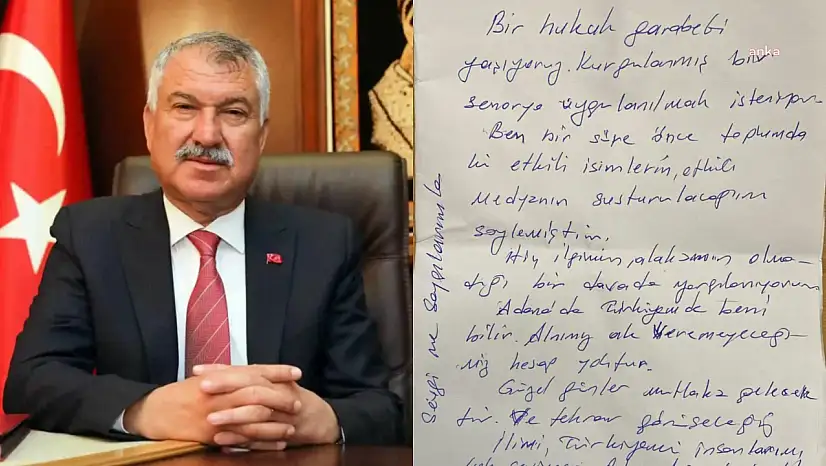 anka
Bir hukuk garabeti
yaşıyoruz. Kurgulanmış bir
senaryo uygulanılmak isteniyor.
Ben bir süre önce toplumda
ki etkili isimlerin, etkili
medyanın susturulacağını
söylemiştim.
Hiç ilgimin, alakamın olma-
dığı bir davada yargılanıyorum
Adana'da Türkiye'de beni
bilir. Alnım ak veremeyeceği-
miz hesap yoktur.
Güzel günler mutlaka gelecek
tir. Ve tekrar görüşeceğiz
İlimi, Türkiyemi, insanlarımı,
Sevgi ve Saygılarımla